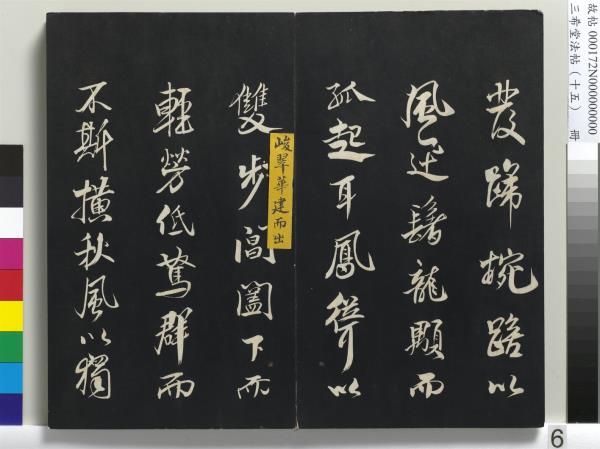 故帖 000172N000000000
三希堂法帖（十五） 冊
發蹄椀踣以
風迅鬐龍顒而
孤起耳鳳聳以
峻翠華建而出
雙步閶闔下而
輕勞低駑群而
不斯橫秋風以獨
6